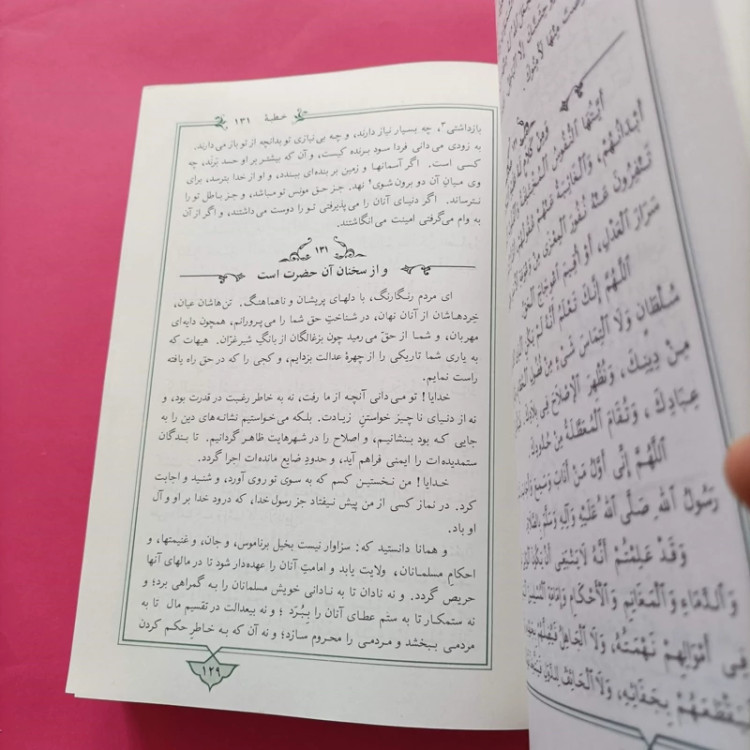 خطبهٔ ۱۳۱
بازداشتی۳، چه بسیار نیاز دارند، و چه بی‌نیازی تو بدانچه از تو باز می‌دارند.
به زودی می‌دانی فردا سود برنده کیست، و آن که بیشتر بر او حسد بَرند، چه
کسی است. اگر آسمانها و زمین بر بنده‌ای ببندد، و او از خدا بترسد، برای
وی میان آن دو برون شوی۴ نهد. جز حق مونس تو مباشد، و جز باطل تو را
نترساند. اگر دنیای آنان را می‌پذیرفتی تو را دوست می‌داشتند، و اگر از آن
به وام می‌گرفتی امینت می‌انگاشتند.
۱۳۱
و از سخنان آن حضرت است
ای مردم رنگارنگ، با دلهای پریشان و ناهماهنگ. تن‌هاشان عیان،
خردهاشان از آنان نهان، در شناختِ حق شما را می‌پرورانم، همچون دایه‌ای
مهربان، و شما از حقّ می‌رمید چون بزغالگان از بانگِ شیر غرّان. هیهات که
به یاری شما تاریکی را از چهرهٔ عدالت بزدایم، و کجی را که در حق راه یافته
راست نمایم.
خدایا! تو می‌دانی آنچه از ما رفت، نه به خاطر رغبت در قدرت بود، و
نه از دنیای ناچیز خواستنِ زیادت. بلکه می‌خواستیم نشانه‌های دین را به
جایی که بود بنشانیم، و اصلاح را در شهرهایت ظاهر گردانیم. تا بندگان
ستمدیده‌ات را ایمنی فراهم آید، و حدودِ ضایع مانده‌ات اجرا گردد.
خدایا! من نخستین کسم که به سوی تو روی آورد، و شنید و اجابت
کرد. در نماز کسی از من پیش نیفتاد جز رسول خدا، که درود خدا بر او و آل
او باد.
و همانا دانستید که: سزاوار نیست بخیل بر ناموس، و جان، و غنیمتها، و
احکامِ مسلمانان، ولایت یابد و امامتِ آنان را عهده‌دار شود تا در مالهای آنها
حریص گردد. و نه نادان تا به نادانی خویش مسلمانان را به گمراهی برد؛ و
نه ستمکار تا به ستم عطای آنان را بِبُرَد؛ و نه بیعدالت در تقسیم مال تا به
مردمی ببخشد و مردمی را محروم سازد؛ و نه آن که به خاطرِ حکم کردن
۱۲۹
أَيَّتُهَا النُّفُوسُ الْمُخْتَلِفَةُ
اللَّهُمَّ إِنَّكَ تَعْلَمُ أَنَّهُ لَمْ يَكُنِ
سُلْطَانٍ وَلَا الْتِمَاسَ شَيْءٍ مِنْ فُضُولِ
مِنْ دِينِكَ، وَنُظْهِرَ الْإِصْلَاحَ فِي بِلَادِكَ
عِبَادِكَ، وَتُقَامَ الْمُعَطَّلَةُ مِنْ حُدُودِكَ.
اللَّهُمَّ إِنِّي أَوَّلُ مَنْ أَنَابَ وَسَمِعَ
رَسُولُ اللَّهِ صَلَّى اللَّهُ عَلَيْهِ وَآلِهِ وَسَلَّمَ بِالصَّلَاةِ
وَقَدْ عَلِمْتُمْ أَنَّهُ لَا يَنْبَغِي أَنْ
وَالدِّمَاءِ وَالْمَغَانِمِ وَالْأَحْكَامِ وَإِمَامَةِ
فِي أَمْوَالِهِمْ نَهْمَتُهُ، وَلَا الْجَاهِلُ
فَيَقْطَعَهُمْ بِجَفَائِهِ، وَلَا الْحَائِفُ لِلدُّوَلِ